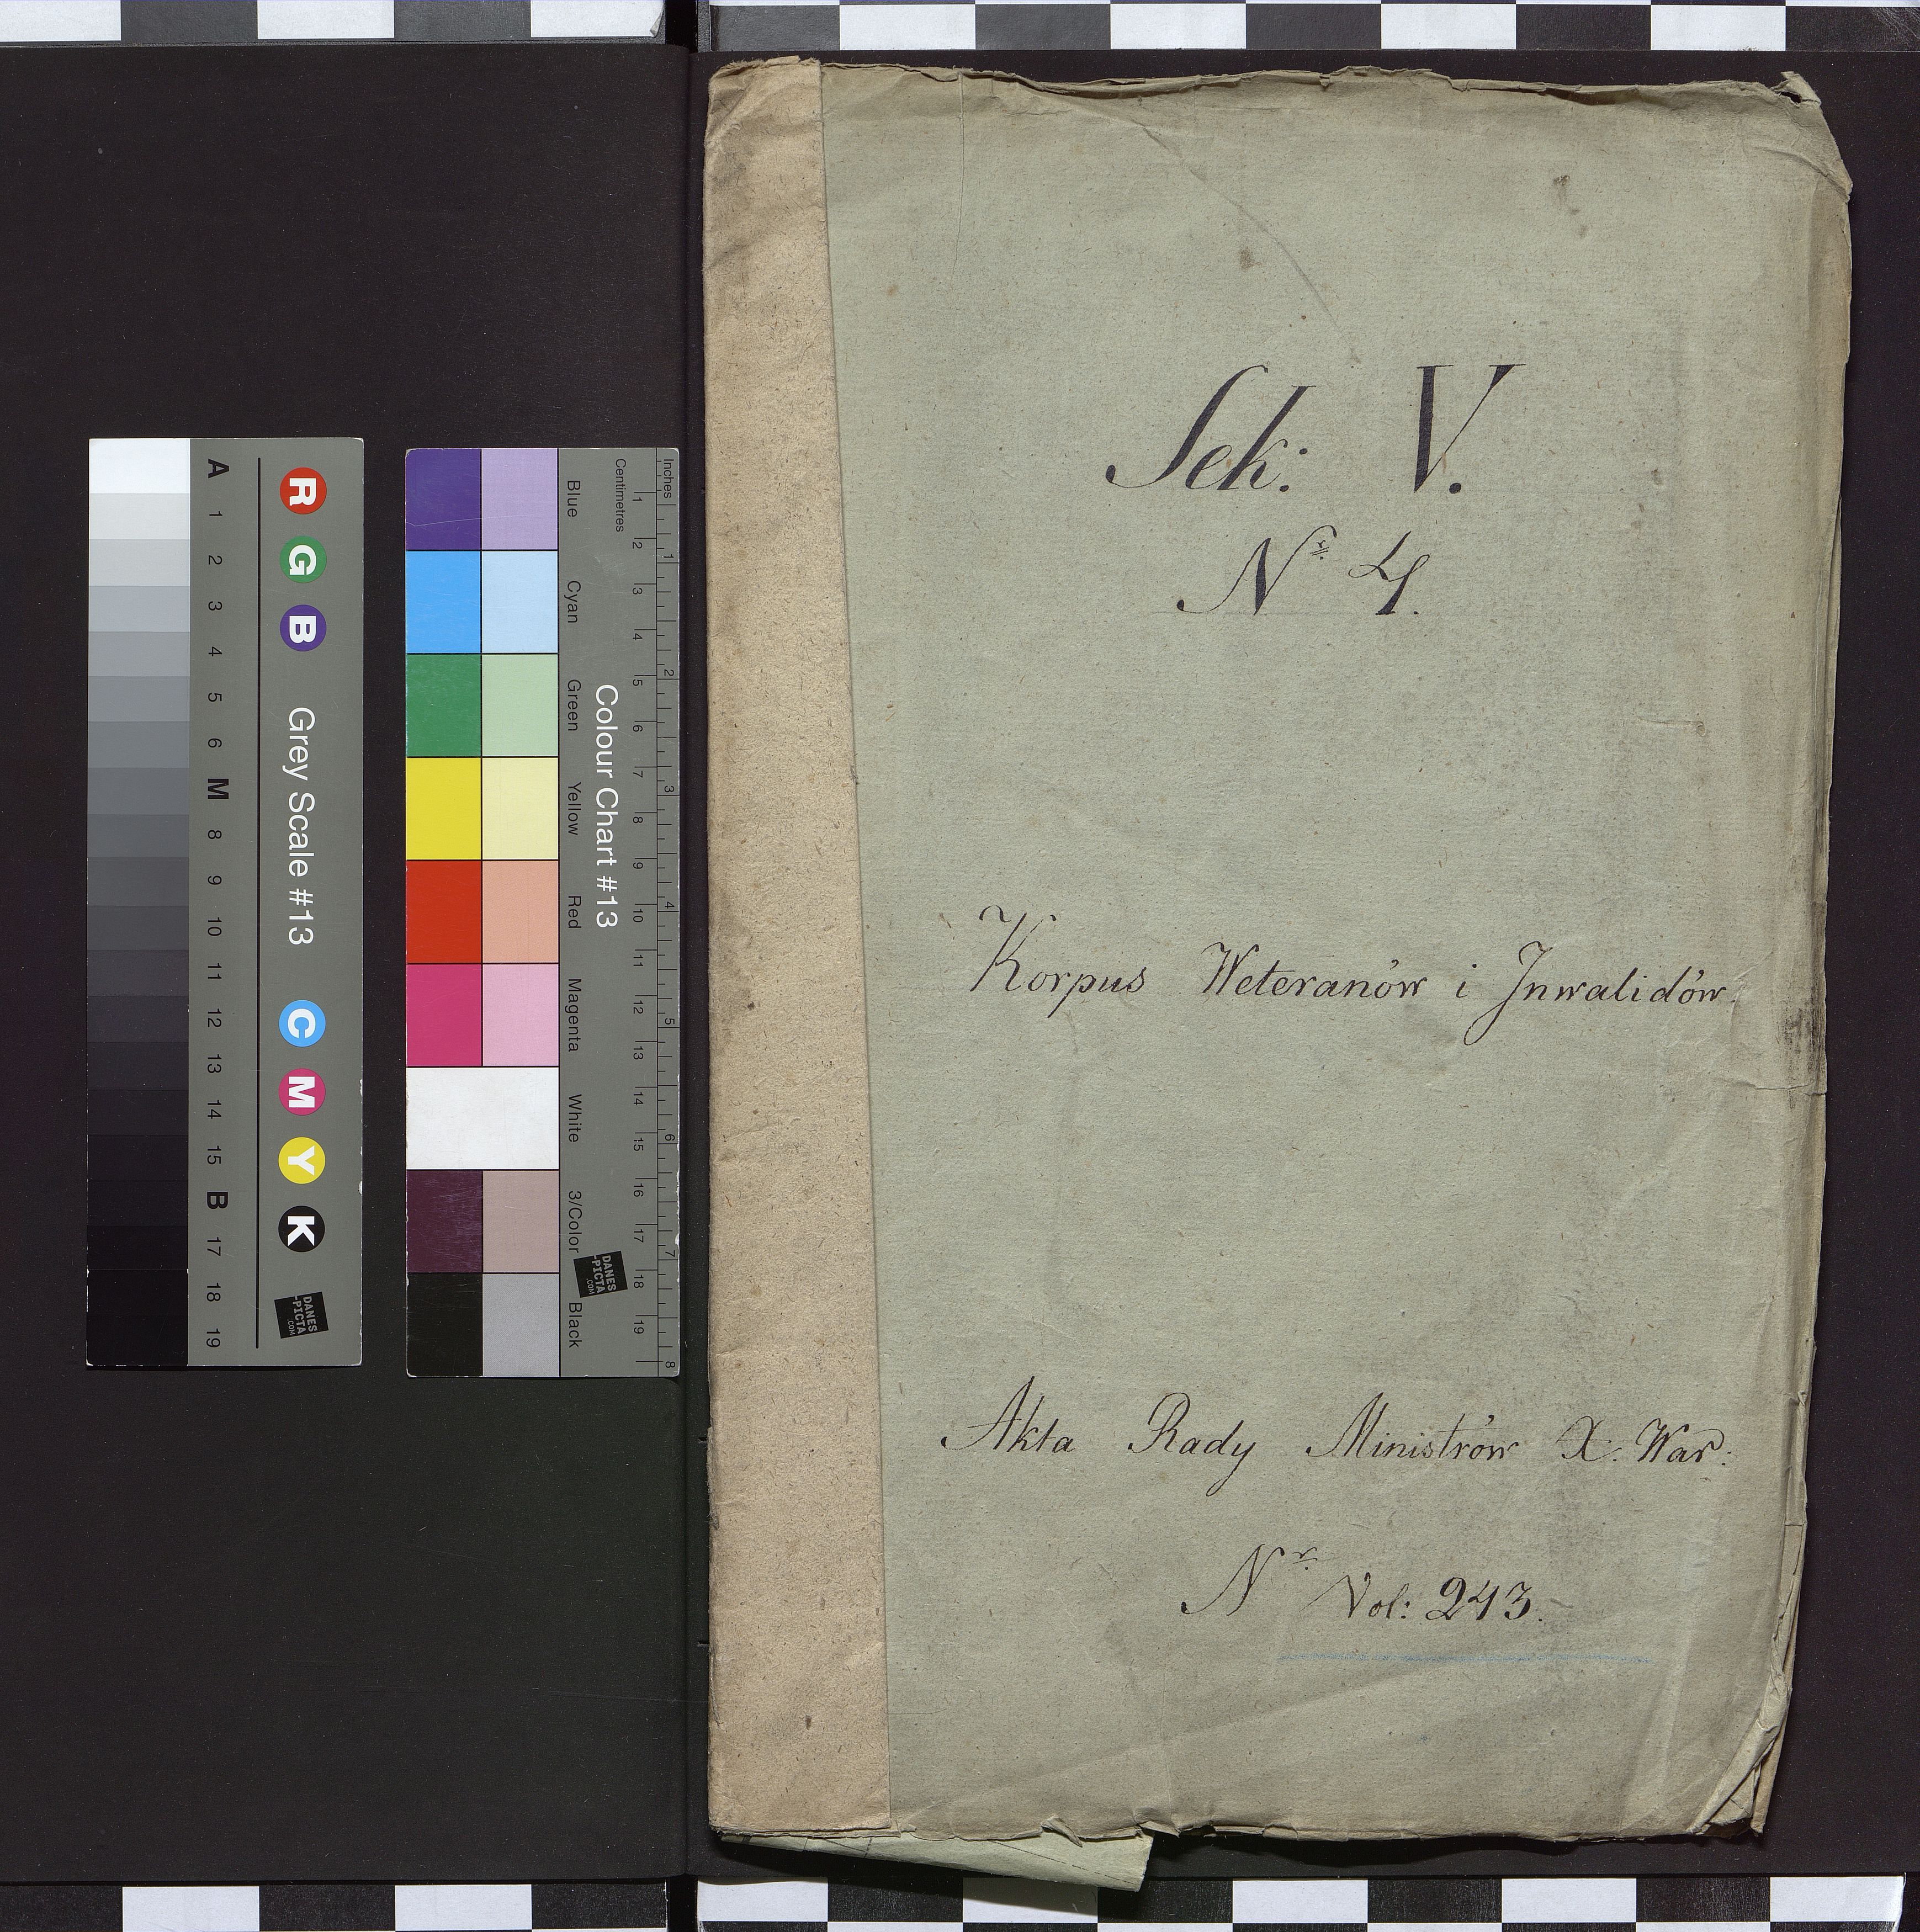 Sek: V.
Nr 4.
Korpus Weteranów i Inwalidów.
Akta Rady Ministrów X. War:
Nr Vol: 243.
A 1 2 3 4 5 6 M 8 9 10 11 12 13 14 15 B 17 18 19
R G B Grey Scale #13 C M Y K
DANES
-PICTA
.COM
Blue Cyan Green Yellow Red Magenta White 3/Color Black
Colour Chart #13
DANES
-PICTA
.COM
Centimetres 1 2 3 4 5 6 7 8 9 10 11 12 13 14 15 16 17 18 19
Inches 1 2 3 4 5 6 7 8